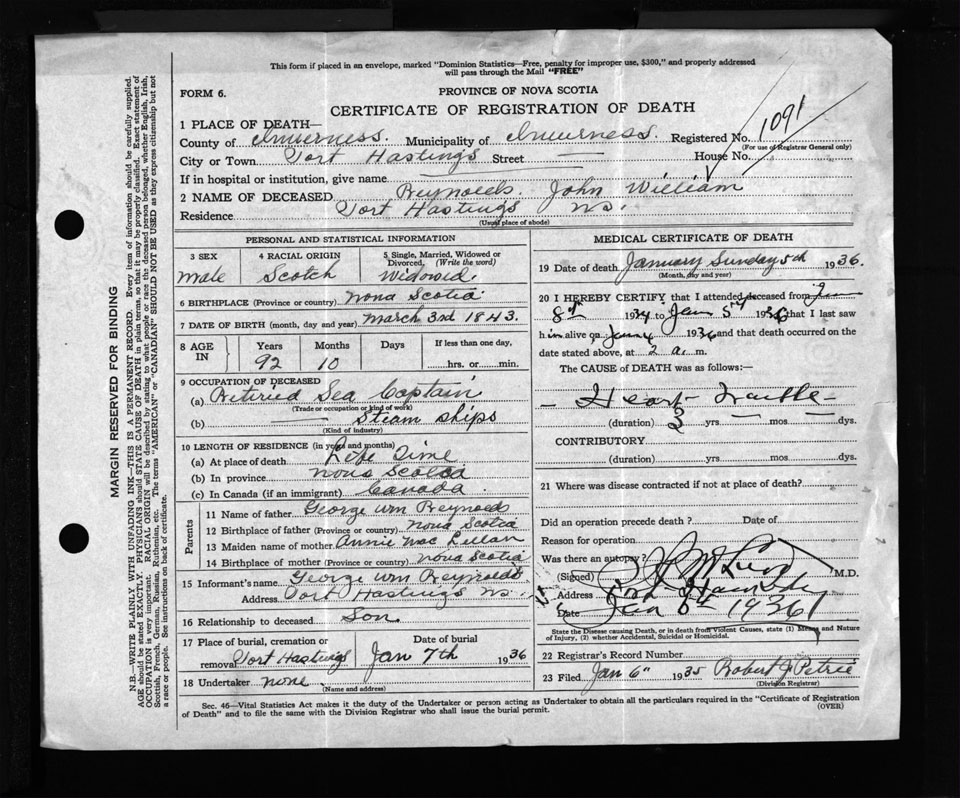 This form if placed in an envelope, marked "Dominion Statistics—Free, penalty for improper use, $300," and properly addressed
will pass through the Mail "FREE"
FORM 6.
PROVINCE OF NOVA SCOTIA
CERTIFICATE OF REGISTRATION OF DEATH
1 PLACE OF DEATH—
County of Inverness. Municipality of Inverness. Registered No. 1091
(For use of Registrar General only)
City or Town Port Hastings Street — House No.
If in hospital or institution, give name
2 NAME OF DECEASED Reynolds. John William
Residence Port Hastings NS.
(Usual place of abode)
PERSONAL AND STATISTICAL INFORMATION
3 SEX
male
4 RACIAL ORIGIN
Scotch
5 Single, Married, Widowed or
Divorced, (Write the word)
Widowed.
6 BIRTHPLACE (Province or country) Nova Scotia
7 DATE OF BIRTH (month, day and year) March 3rd 1843.
8 AGE IN
Years Months Days If less than one day,
92 10 hrs. or min.
9 OCCUPATION OF DECEASED
(a) Retired Sea Captain
(Trade or occupation or kind of work)
(b) — Steam ships
(Kind of industry)
10 LENGTH OF RESIDENCE (in years and months)
(a) At place of death Life Time
(b) In province Nova Scotia
(c) In Canada (if an immigrant) Canada.
Parents
11 Name of father George Wm Reynolds
12 Birthplace of father (Province or country) Nova Scotia
13 Maiden name of mother Annie Mac Lellan
14 Birthplace of mother (Province or country) Nova Scotia
15 Informant's name George Wm Reynolds
Address Port Hastings NS.
16 Relationship to deceased Son
17 Place of burial, cremation or Date of burial
removal Port Hastings Jan 7th 1936
18 Undertaker none.
(Name and address)
MEDICAL CERTIFICATE OF DEATH
19 Date of death January Sunday 5th 1936.
(Month, day and year)
20 I HEREBY CERTIFY that I attended deceased from
8th 1934 to Jan 5th 1936 that I last saw
him alive on Jany 4 1936 and that death occurred on
date stated above, at 2 a. m.
The CAUSE of DEATH was as follows:—
Heart
(duration) 3 yrs — mos — dys.
CONTRIBUTORY
(duration) yrs mos dys.
21 Where was disease contracted if not at place of death?
Did an operation precede death? Date of
Reason for operation
Was there an autopsy?
(Signed) M.D.
Address Port
Date Jan 6th 1936
State the Disease causing Death, or in death from Violent Causes, state (1) Means and Nature
of Injury, (2) whether Accidental, Suicidal or Homicidal.
22 Registrar's Record Number
23 Filed Jan 6" 1935 Robert J Petrie
(Division Registrar)
Sec. 46—Vital Statistics Act makes it the duty of the Undertaker or person acting as Undertaker to obtain all the particulars required in the "Certificate of Registration
of Death" and to file the same with the Division Registrar who shall issue the burial permit.
(OVER)
MARGIN RESERVED FOR BINDING
N.B.—WRITE PLAINLY, WITH UNFADING INK—THIS IS A PERMANENT RECORD. Every item of information should be carefully supplied.
AGE should be stated EXACTLY. PHYSICIANS should STATE CAUSE OF DEATH in plain terms, so that it may be properly classified. Exact statement of
OCCUPATION is very important. RACIAL ORIGIN will be described by stating to what people or race the deceased person belonged, whether English, Irish,
Scottish, French, German, Russian, Ruthenian, etc. The terms "AMERICAN" or "CANADIAN" SHOULD NOT BE USED as they express citizenship but not
a race or people. See instructions on back of certificate.